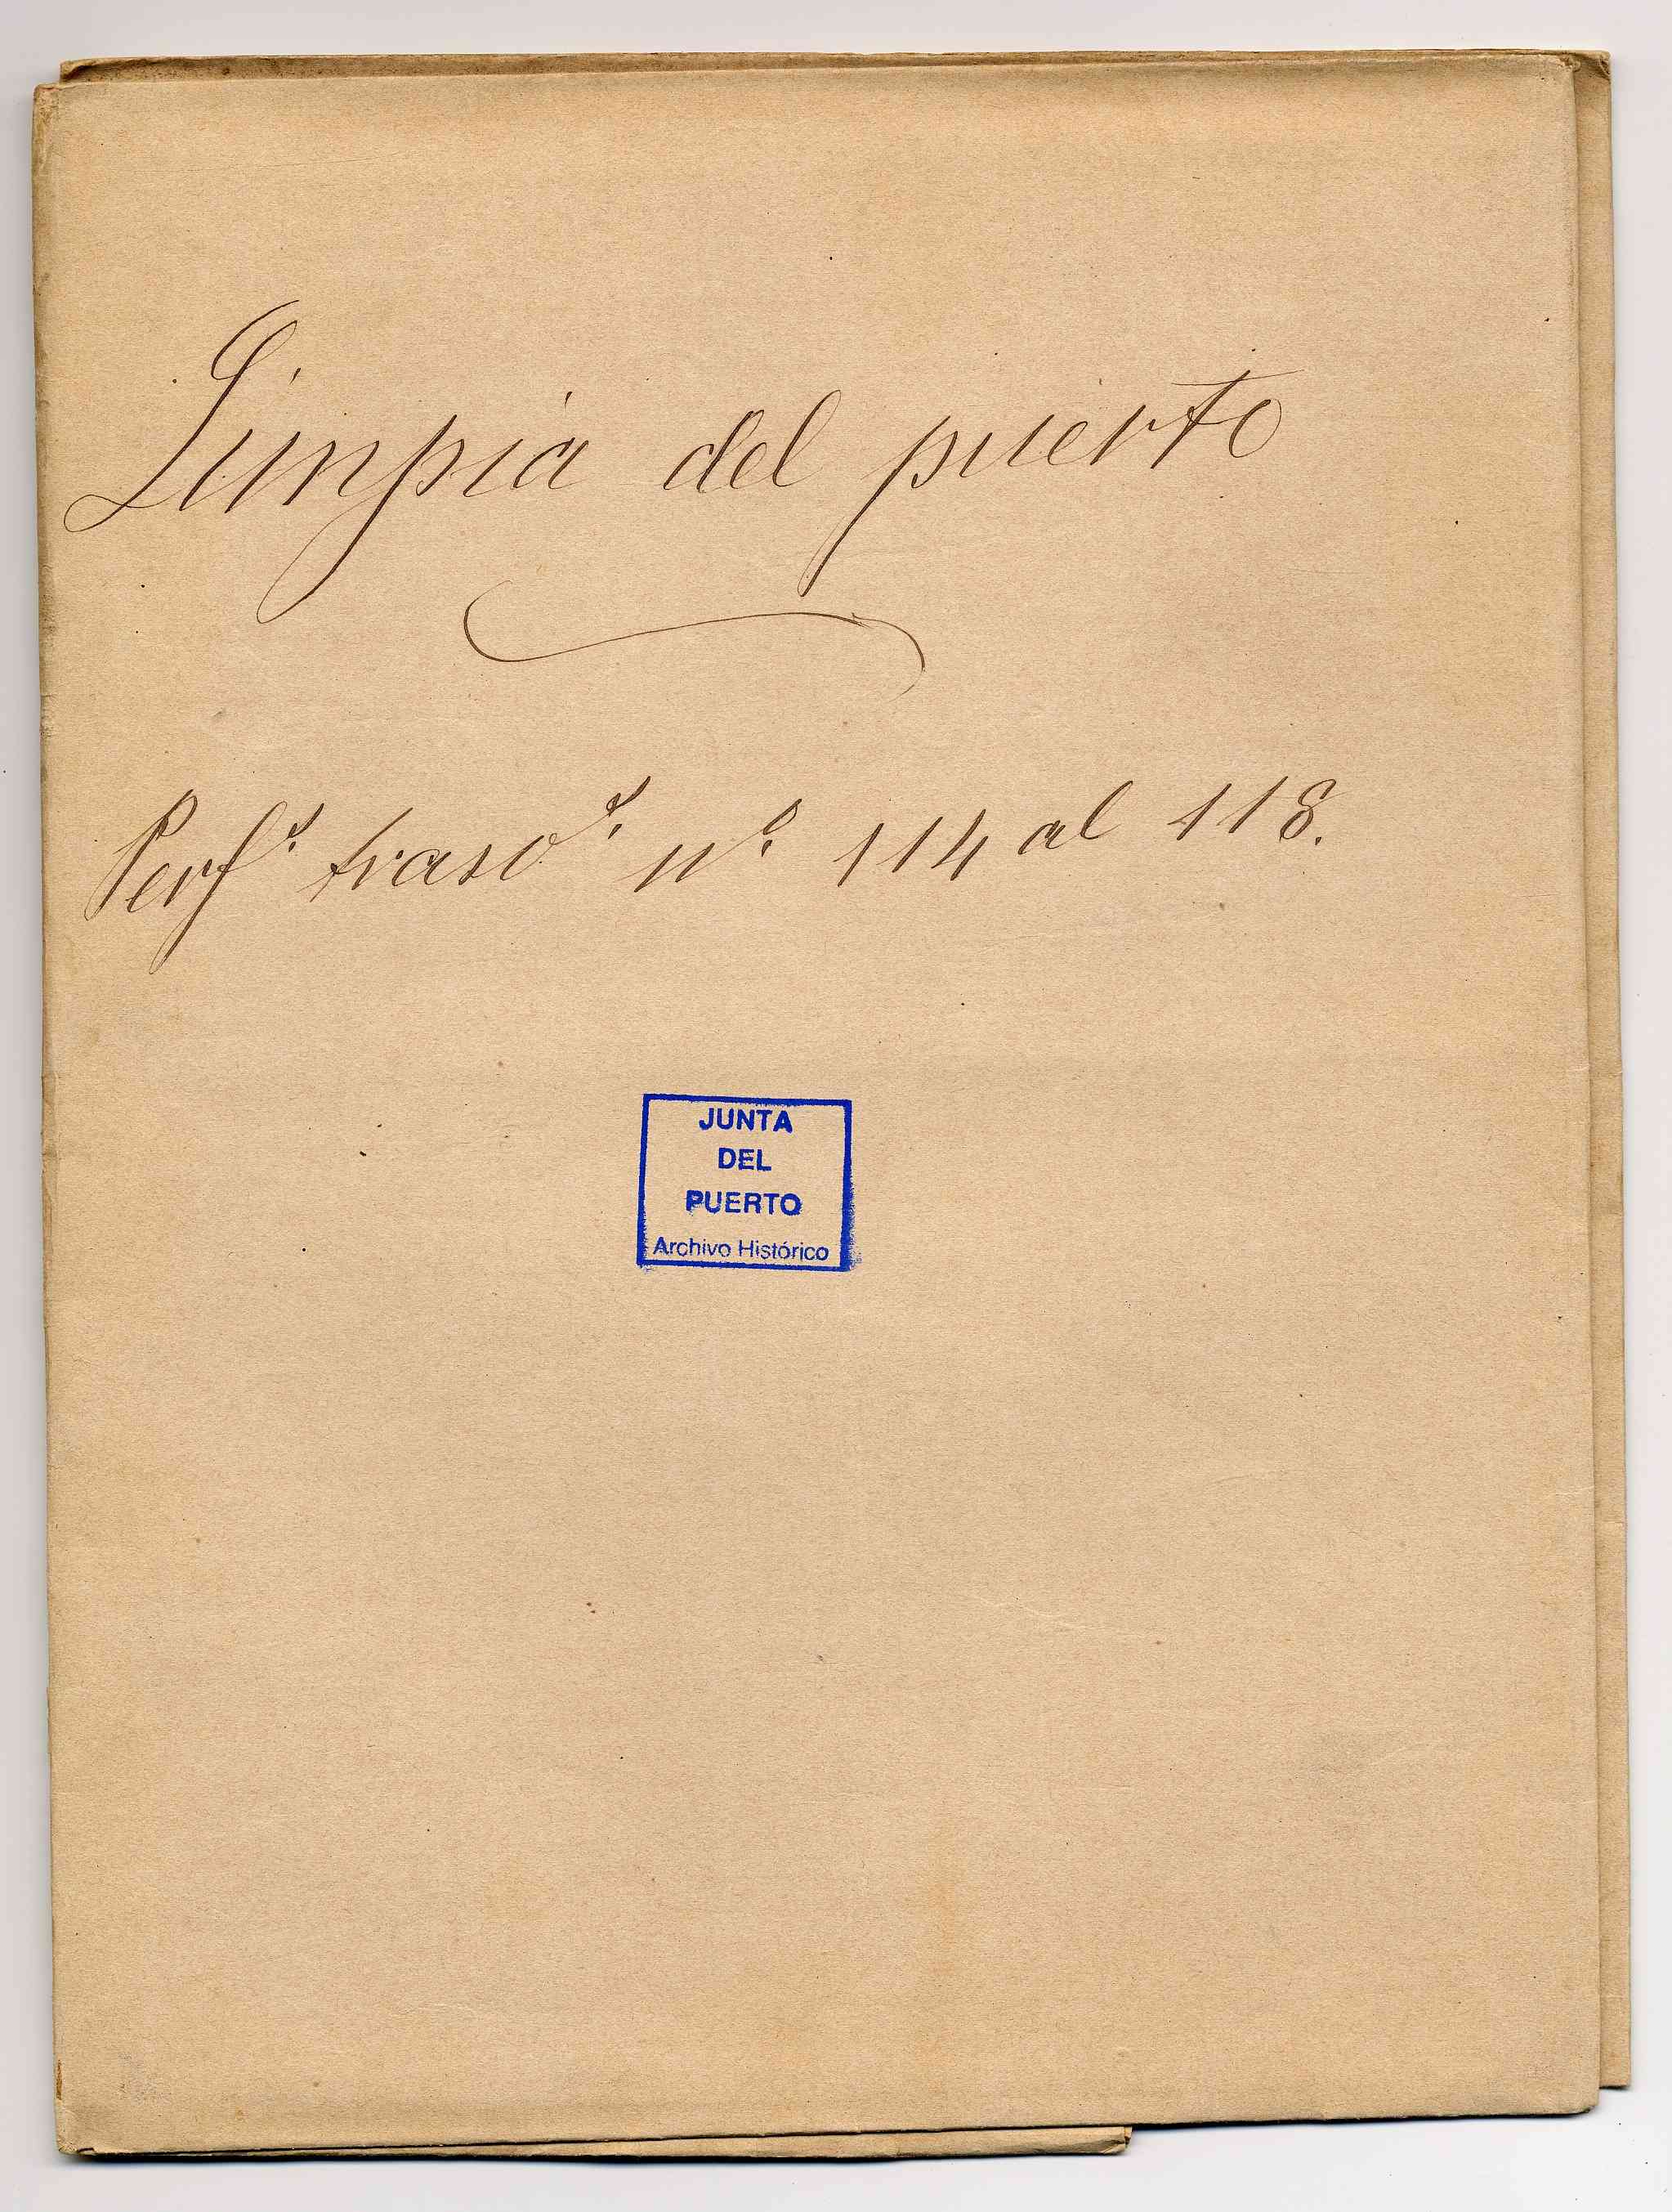 Limpia del puerto
Perf.s trasv.s n.o 114 al 118.
JUNTA
DEL
PUERTO
Archivo Histórico